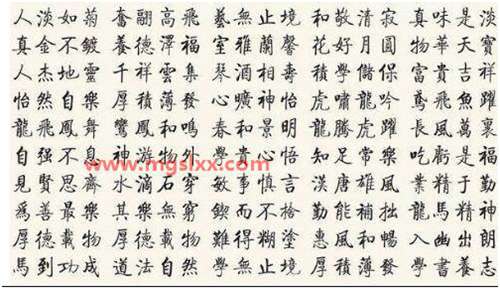 人淡如菊 奮翮高飛 藝無止境 和敬清寂 真味是淡
真金不鍍 養德澤福 室雅蘭馨 花好月圓 物華天寶
人杰地靈 千祥雲集 琴酒相壽 積學儲保 富貴吉祥
怡然自樂 厚積薄發 心曠神怡 虎嘯龍吟 鳶飛魚躍
龍飛鳳舞 鸞鳳和鳴 春和景明 龍騰虎躍 長風萬裏
自强不息 神游物外 學貴心悟 知足常樂 吃虧是福
www.mgslxx.com
見賢思齊 水滴石穿 敏事慎言 漢唐雄風 業精于勤
爲善最樂 其樂無窮 學而不捨 勤能補拙 龍馬精神
厚德載物 厚德載物 難得糊塗 惠風和暢 入幽出朗
馬到功成 道法自然 學無止境 厚積薄發 學書養志